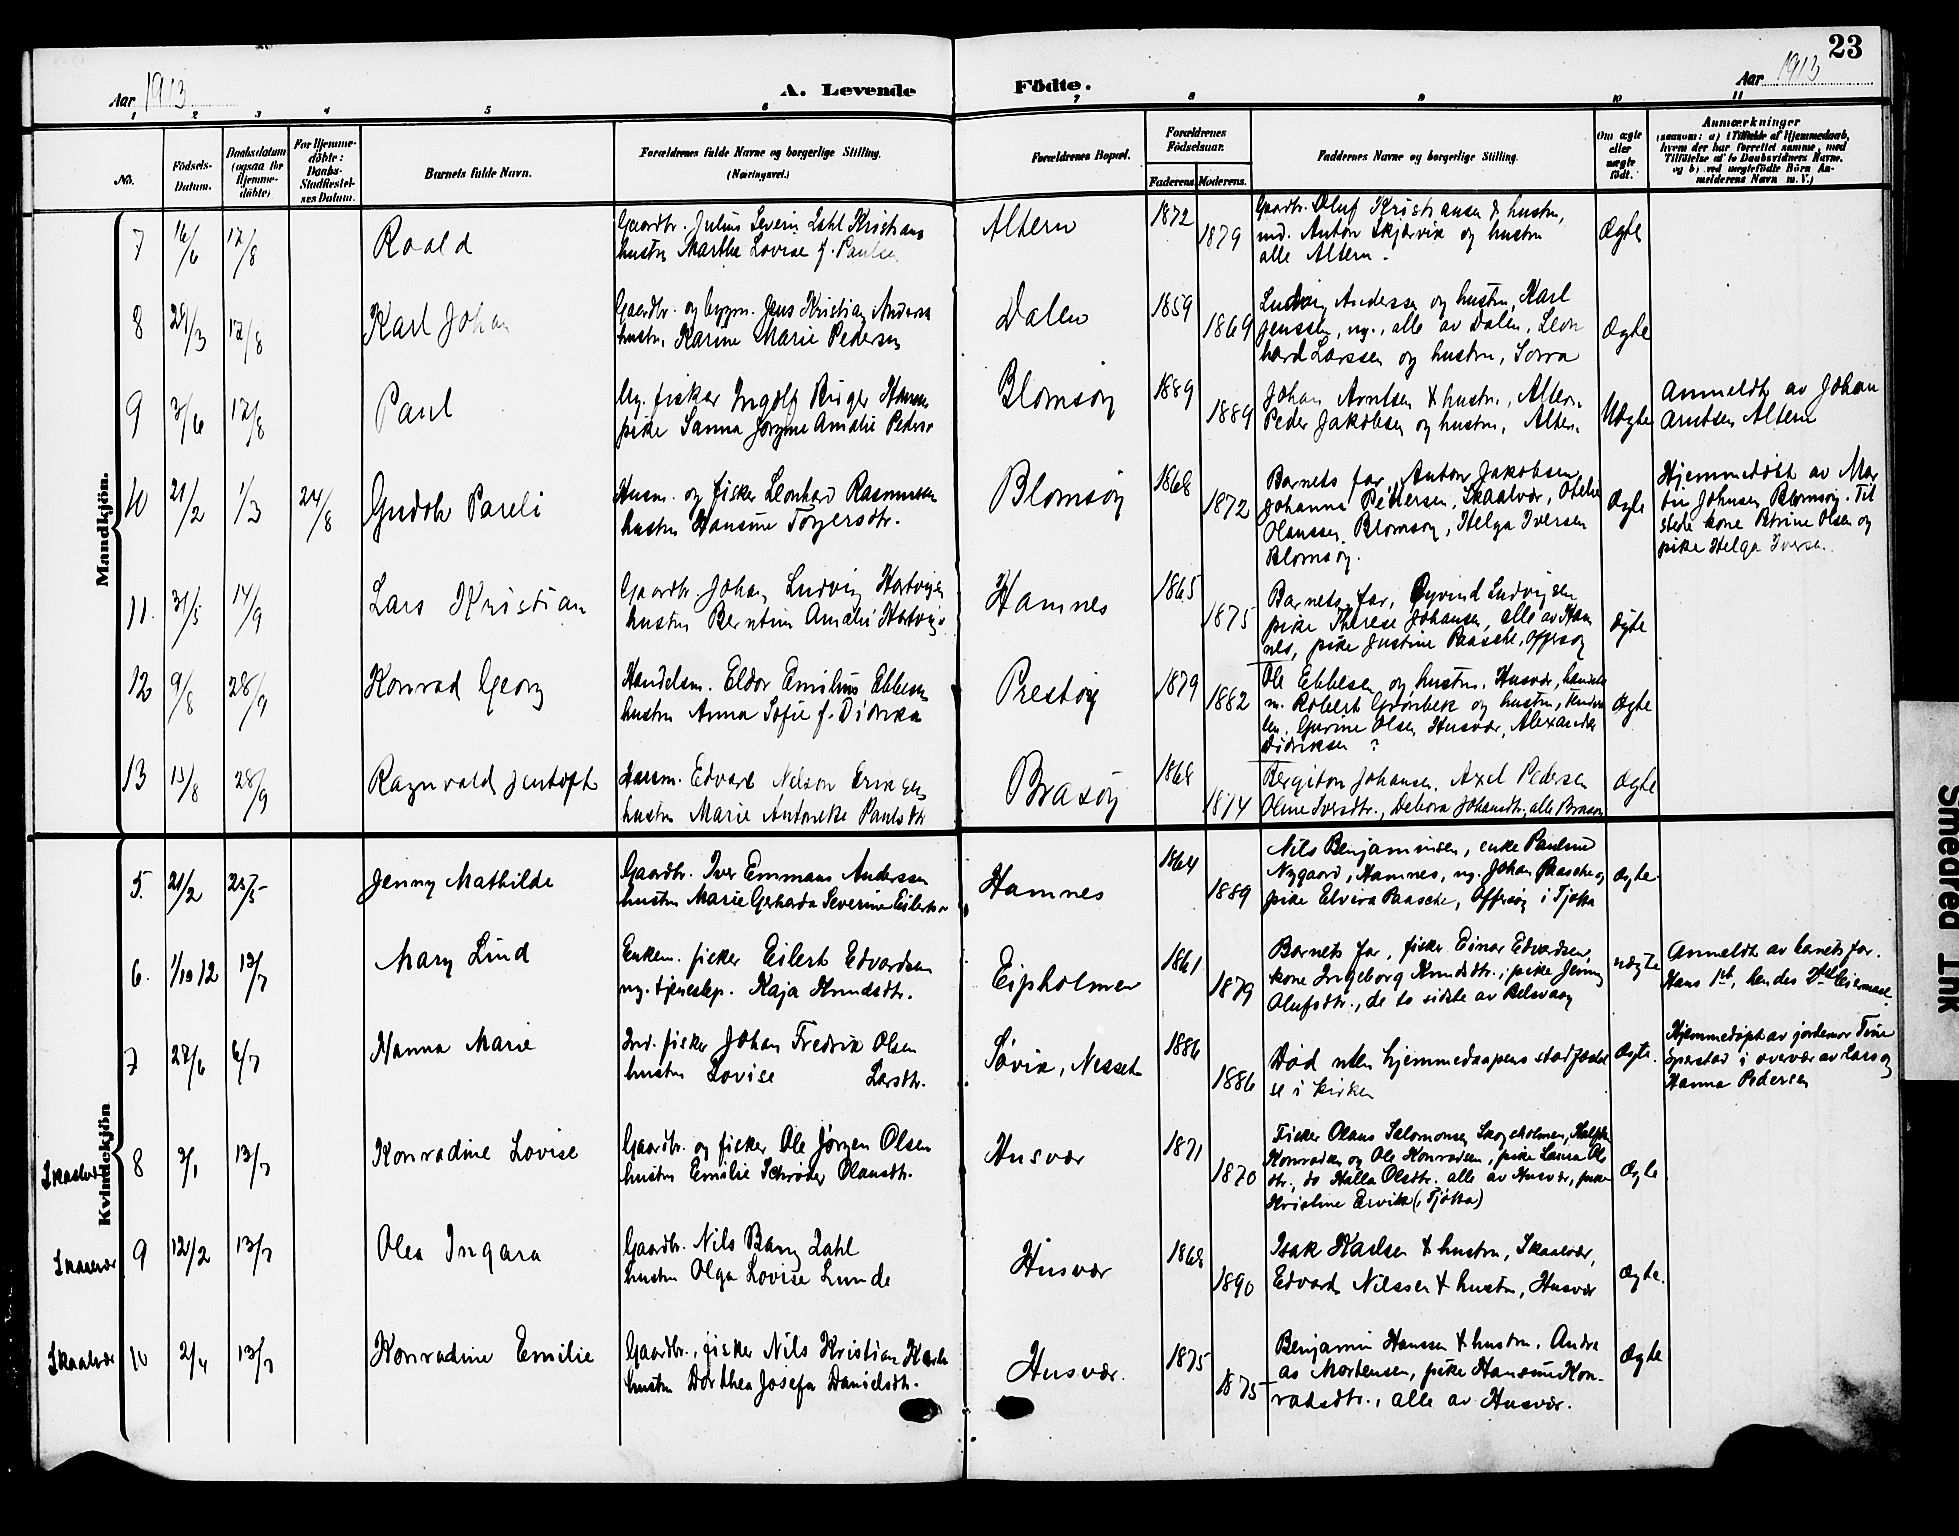 23
Aar 1913
A. Levende
Födte.
Aar 1913
1 2 3 4 5 6 7 8 9 10 11
No.
Födsels-
Datum.
Daabsdatum
(ogsaa for
Hjemme-
döbte)
For Hjemme-
döbte:
Daabs-
Stadfæstel-
ses Datum.
Barnets fulde Navn.
Forældrenes fulde Navne og borgerlige Stilling.
(Næringsvei.)
Forældrenes Bopæl.
Forældrenes
Födselsaar.
Faderens. Moderens.
Faddernes Navne og borgerlige Stilling.
Om ægte
eller
uægte
födt.
Anmærkninger
(saasom: a) i Tilfælde af Hjemmedaab,
hvem der har forrettet samme, med
Tilföielse af to Daabsvidners Navne.
og b) ved uægtefödte Börn An-
melderens Navn m. V.)
Mandkjön.
7 16/6 17/8 Roald
Gaardbr. Julius Severin Zahl Kristians
hustru Marthe Lovise f. Paulse
Altern 1872 1879
Gaardbr. Oluf Kristiansen & hustru,
ind. Anton Skjærvik og hustru
alle Altern.
Ægte
8 24/3 17/8 Karl Johan
Gaardbr. og bygm. Jens Kristian Anders
hustru Karine Marie Pedersen
Dalen 1859 1869
Ludvig Anderssen og hustru, Karl
Jenssen, ug., alle av Dalen, Leon
hard Larssen og hustru, Sorra
Ægte
9 3/6 17/8 Paul
Ug. fisker Ingolf Birger Hansen
pike Sanna Jørgine Amalie Peders
Blomsøy 1889 1889
Johan Arntsen & hustru, Altern.
Peder Jakobsen og hustru, Altern.
Uægte
Anmeldt av Johan
Arntsen Altern
10 21/2 1/3 24/8 Gudolv Pareli
Husm. og fisker Leonhard Rasmussen
hustru Hansine Torgersdtr.
Blomsøy 1868 1872
Barnets far, Anton Jakobsen
Johanna Pettersen, Skaalvær, Otelie
Olaussen Blomsøy, Helga Iversen
Blomsøy.
Ægte
Hjemmedøbt av Mar
tin Johnsen Blomsøy. Til
stede kone Petrine Olsen og
pike Helga Iversen.
11. 31/5 14/9 Lars Kristian
Gaardbr. Johan Ludvig Hartvigsen
hustru Berntine Amalie Hartvigs
Hamnes 1865 1875
Barnets far, Øyvind Ludvigsen
pike Therese Johansen, alle av Ham
nes, pike Justine Paasche, Offersøy
Ægte
12 9/8 28/9 Konrad Georg
Handelsm. Eldor Emilius Ebbesen
hustru Anna Sofie f. Didriks
Prestøy 1879 1882
Ole Ebbesen og hustru, Husvær, handels
m. Robert Grønbek og hustru,
Gurine Olsen Husvær, Alexander
Didriksen ?
Ægte
13 15/8 28/9 Ragnvald Jentoft
Husm. Edvart Nelson Eriksen
hustru Marie Antonette Paulsdtr
Brasøy 1868 1874
Bergiton Johansen, Axel Pedersen
Oline Iversdtr., Debora Johansdtr., alle Brasøy
Ægte
Kvindekjön
5. 21/2 25/5 Jenny Mathilde
Gaardbr. Iver Emmaus Anderssen
hustru Marie Gerharda Severine Eilertsen
Hamnes 1864 1889
Nils Benjaminsen, enke Pauline
Nygaard, Hamnes, ug. Johan Paasche og
pike Elvira Paasche, Offersøy i Tjøtta
Ægte
6. 1/10 12 13/7 Mary Lind
Enkem. fisker Eilert Edvardsen
ug. tjenestep. Kaja Knudsdtr.
Eipholmen 1861 1879
Barnets far, fisker Einar Edvardsen,
kone Ingeborg Knudsdtr., pike Jenny
Olufsdtr., de to sidste av Belsvaag
uægte
Anmeldt av barnets far.
Hans 1st, hendes 2det leiermaal
7 27/6 6/7 Hanna Marie
Ind. fisker Johan Fredrik Olsen
hustru Lovise Larsdtr.
Søvik, Nesset 1886 1886
Død uten hjemmedaapens stadfæstel
se i kirken
Ægte.
Hjemmedøpt av jordemor Tine
Sperstad i overvær av Lars og
Hanna Pedersen
Skaalvær 8 3/1 13/7 Konradine Lovise
Gaardbr. og fisker Ole Jørgen Olsen
hustru Emilie Schrøder Olausdtr.
Husvær 1871 1870
Fisker Olaus Salomonsen Skogsholmen,
Konradsen og Ole Konradsen, pike Laura Ols
dtr., do Halla Olsdtr. alle av Husvær, pike
Kristine Ervik (i Tjøtta)
Ægte
Skaalvær 9 12/2 13/7 Olea Ingara
Gaardbr. Nils Bang Zahl
hustru Olga Lovise Lunde
Husvær 1868 1890
Isak Karlsen & hustru, Skaalvær,
Edvard Nilssen & hustru, Husvær
Ægte.
Skaalvær 10 2/4 13/7 Konradine Emilie
Gaardbr., fisker Nils Kristian Karls
hustru Dorthea Josefa Danielsdtr.
Husvær. 1875 1875
Benjamin Hanssen & hustru, Andre
as Mortensen, pike Hansine Kon-
radsdtr., alle av Husvær.
Ægte
Smeared Ink